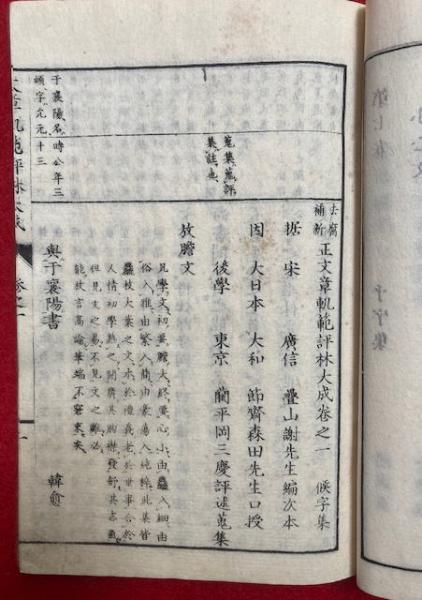 去腐
補新
正文章軌範評林大成卷之一 候字集
据 宋 廣信 疊山謝先生編次本
因 大日本 大和 節齋森田先生口授
後學 東京 藺平岡三慶評述蒐集
放膽文
凡學文初要膽大終要心小由麤入細由
俗入雅由繁入簡由豪蕩入純粹此集皆
麤枝大葉之文本於禮義老於世事合於
人情初學熟之開廣其胸襟發舒其志氣
但見文之易不見文之難必
能放言高論筆端不窘束矣
與于襄陽書 韓愈
蒐集蒐評
集註也
于襄陽名
頔字允元
時公年三
十三
文章軌範評林大成 卷之一